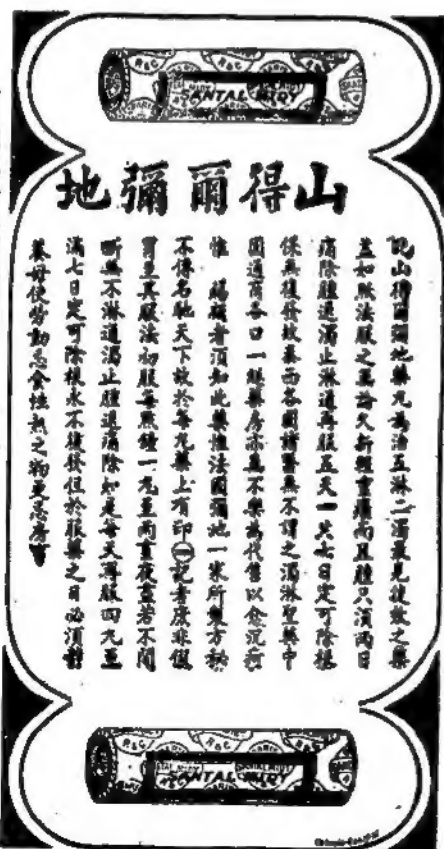 SANTAL MIDY
山得爾彌地
此山得爾彌地藥丸為治五淋二濁最見捷效之藥
蓋如照法服之無論久新輕重癢而且腫只須兩日
痛除腫退濁止淋通再服五天一共七日定可除根
保無復發故泰西各國諸醫無不謂之濁淋聖藥中
國通商各口一經藥房亦莫不樂為代售以愈沉疴
惟 賜顧者須知此藥惟法國彌地一家所製方秘
不傳名馳天下故於每丸藥上有印記者庶非假
冒至其服法初服每點鐘一丸至兩晝夜若不間
斷無不淋通濁止腫退痛除如是每天再服四丸至
滿七日定可除根永不復發但於服藥之日必須靜
養毋使勞動忌食性熱之物更忌房事
SANTAL MIDY